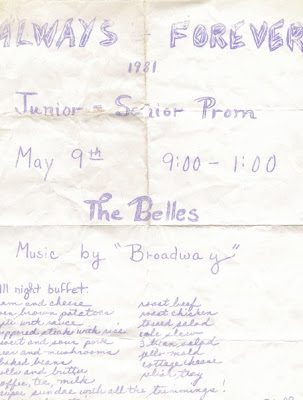 ALWAYS - FOREVER
1981
Junior - Senior Prom
May 9th 9:00 - 1:00
The Belles
Music by "Broadway"
ll night buffet:
am and cheese roast beef
en brown potatoes roast chicken
with sauce tossed salad
steaks with rice cole slaw
weet and sour pork 3 bean salad
and mushrooms jello mold
baked beans cottage cheese
olls and butter relish tray
offee, tea, milk
super sundae with all the trimmings!